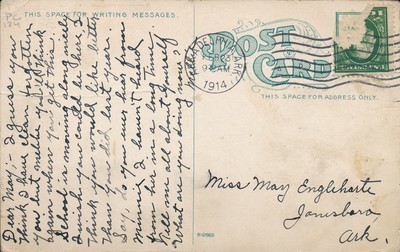 PC
THIS SPACE FOR WRITING MESSAGES.
Dear May:- I guess you
think I have clean forgotten
you but maybe you'll think
again when you get this.
School is moving along nicely
I wish you could be here. I
think you would like better
than you did last year.
Say, do you ever hear from
Minnie I haven't heard
from her in a long time.
Tell me all about yourself
What are you doing now?
POST
CARD
ARK.
9 AM
1914
THIS SPACE FOR ADDRESS ONLY.
Miss May Engleharte
Jonesboro
Ark.